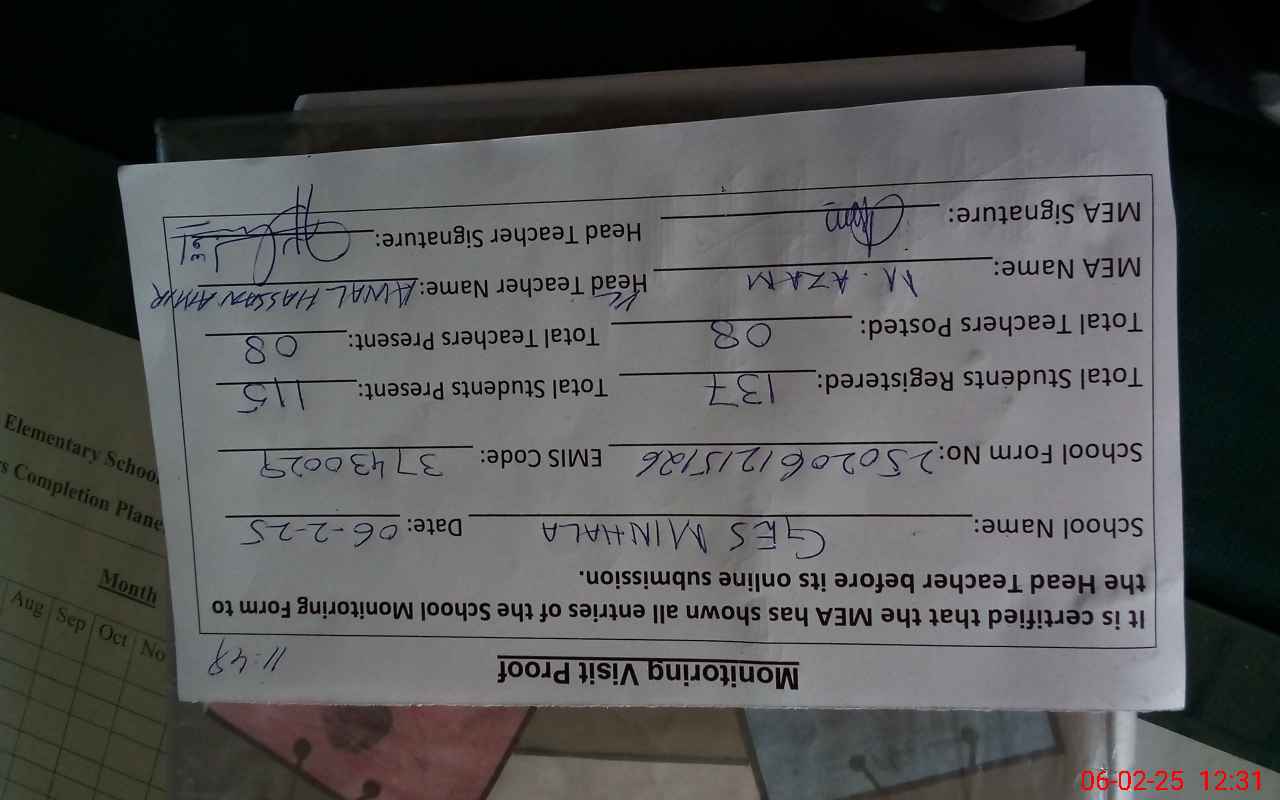 Monitoring Visit Proof
11:48
It is certified that the MEA has shown all entries of the School Monitoring Form to
the Head Teacher before its online submission.
School Name: GES MINHALA Date: 06-2-25
School Form No: 2502061215126 EMIS Code: 37430029
Total Students Registered: 137 Total Students Present: 115
Total Teachers Posted: 08 Total Teachers Present: 08
MEA Name: M. AZAM Head Teacher Name: AWAL HASSAN AMIR
MEA Signature: Head Teacher Signature:
Elementary School
s Completion Plane
Month
Aug Sep Oct No
06-02-25 12:31